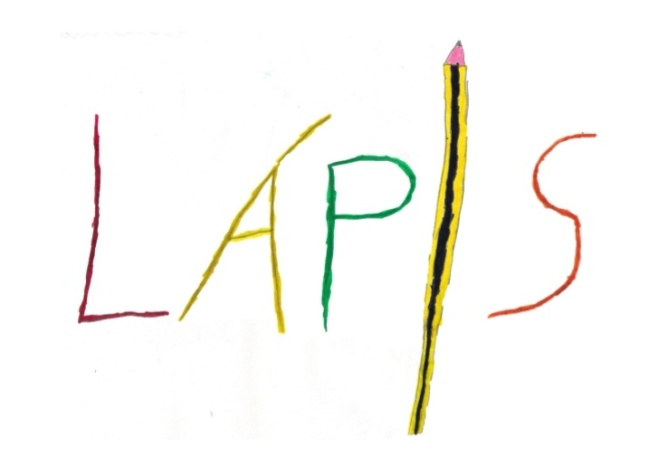 LÁPIS